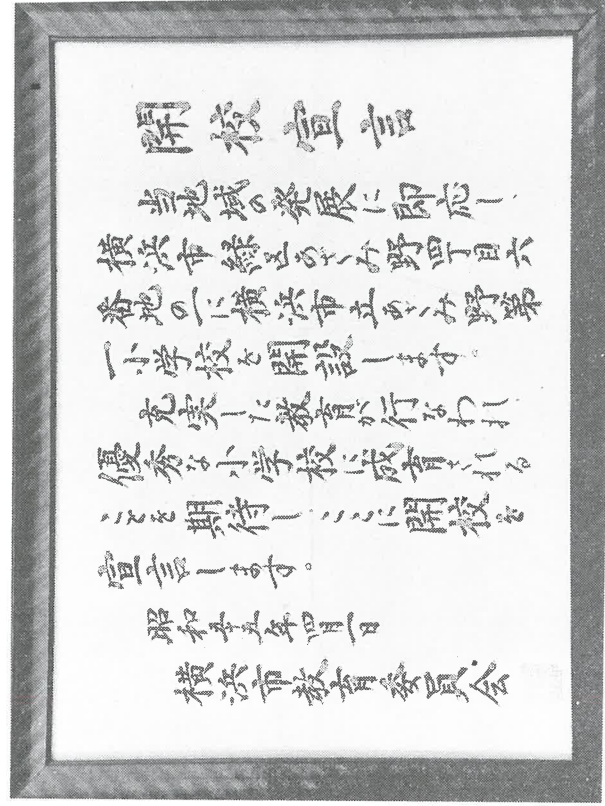 開校宣言
当地域の発展に即応し、
横浜市緑区あざみ野四丁目六
番地の一に横浜市立あざみ野第
一小学校を開設します。
充実した教育が行なわれ
優秀な小学校に成育される
ことを期待し、ここに開校を
宣言します。
昭和五十五年四月一日
横浜市教育委員会